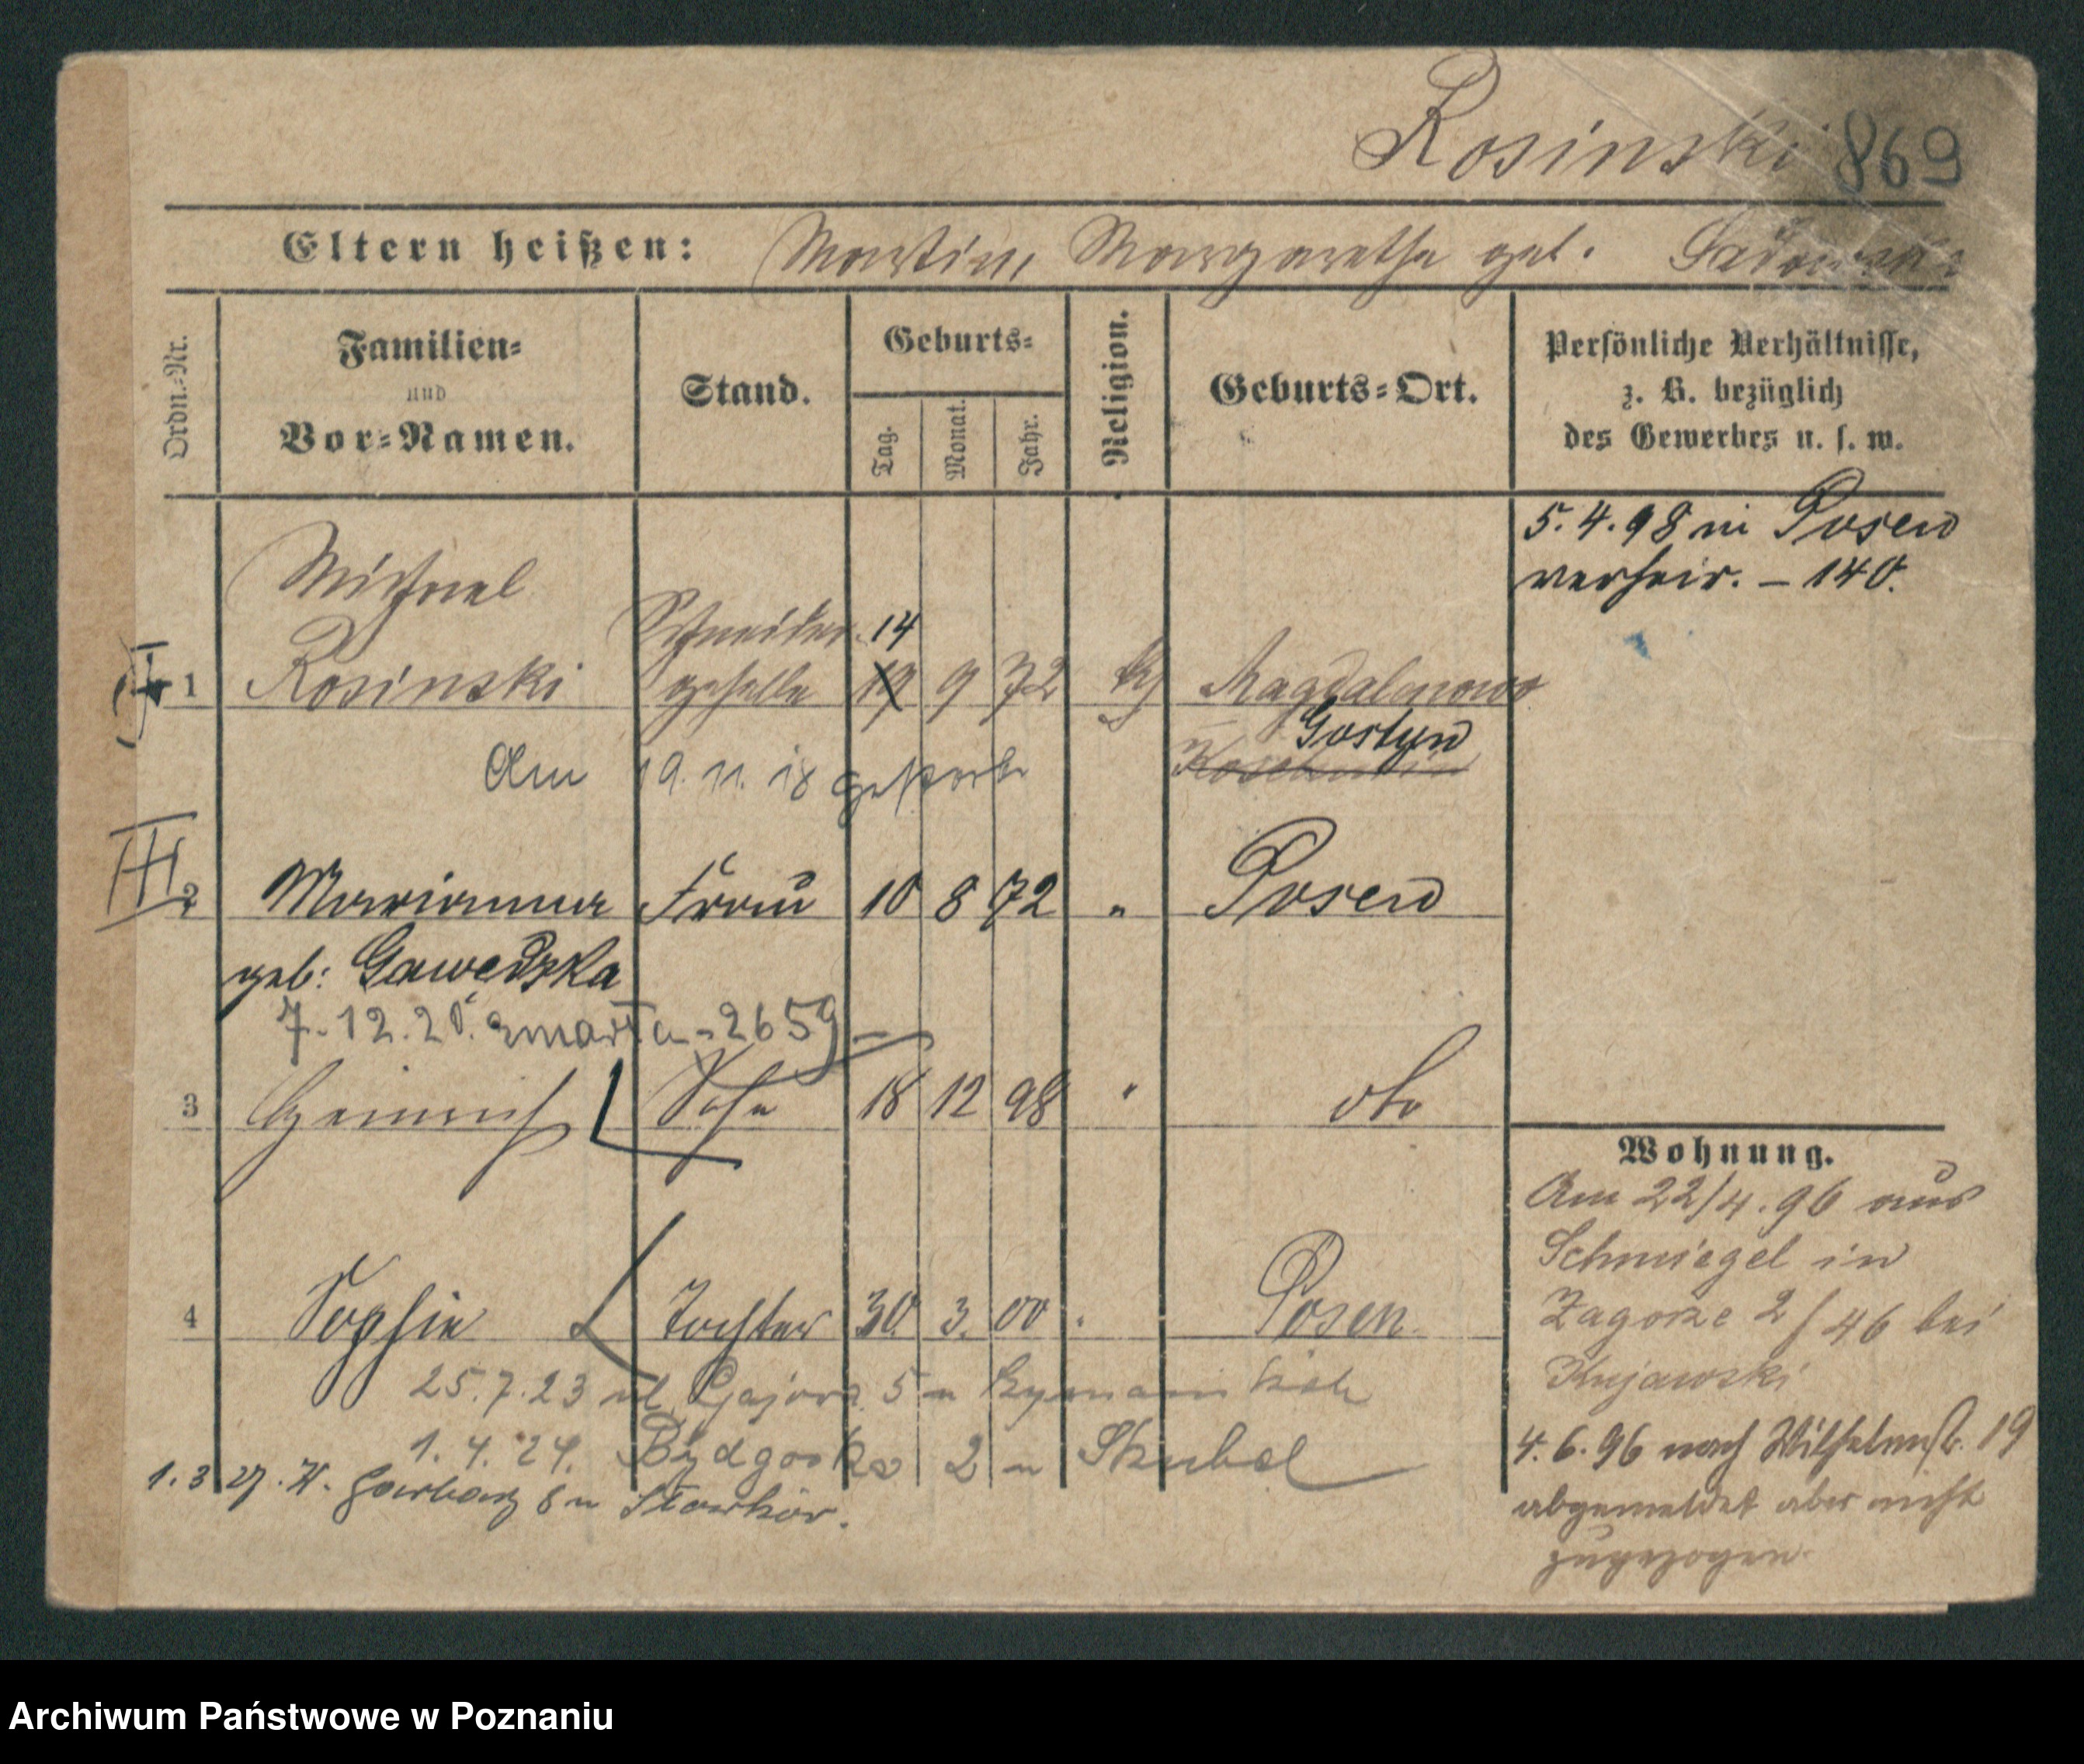 Rosinski 869
Eltern heißen: Martin, Margarethe geb. Sadowska
Ordn.-Nr.
Familien-
und
Vor-Namen.
Stand.
Geburts-
Tag.
Monat.
Jahr.
Religion.
Geburts-Ort.
Persönliche Verhältnisse,
z. B. bezüglich
des Gewerbes u. s. w.
5.4.98 in Posen
verheir. – 140.
Michael
Schneider 14
1 Rosinski geselle 19 9 72 k Magdalenowo
Gostyn
Am 19.11.18 gestorb
III
2 Marianna Frau 10 8 72 " Posen
geb: Gawędzka
7.12.20. zmarła - 2659
3 Heinrich Sohn 18 12 98 " dto
4 Sophie Tochter 30 3. 00 " Posen
25.7.23 ul. 5 u
1.4.24. Bydgoska 2 u Skubel
1.3 27. W. Garbary 8 u
Wohnung.
Am 22/4.96 aus
Schmiegel in
Zagorze 2/46 bei
Kujawski
4.6.96 nach Wilhelmstr. 19
abgemeldet aber nicht
zugezogen.
Archiwum Państwowe w Poznaniu